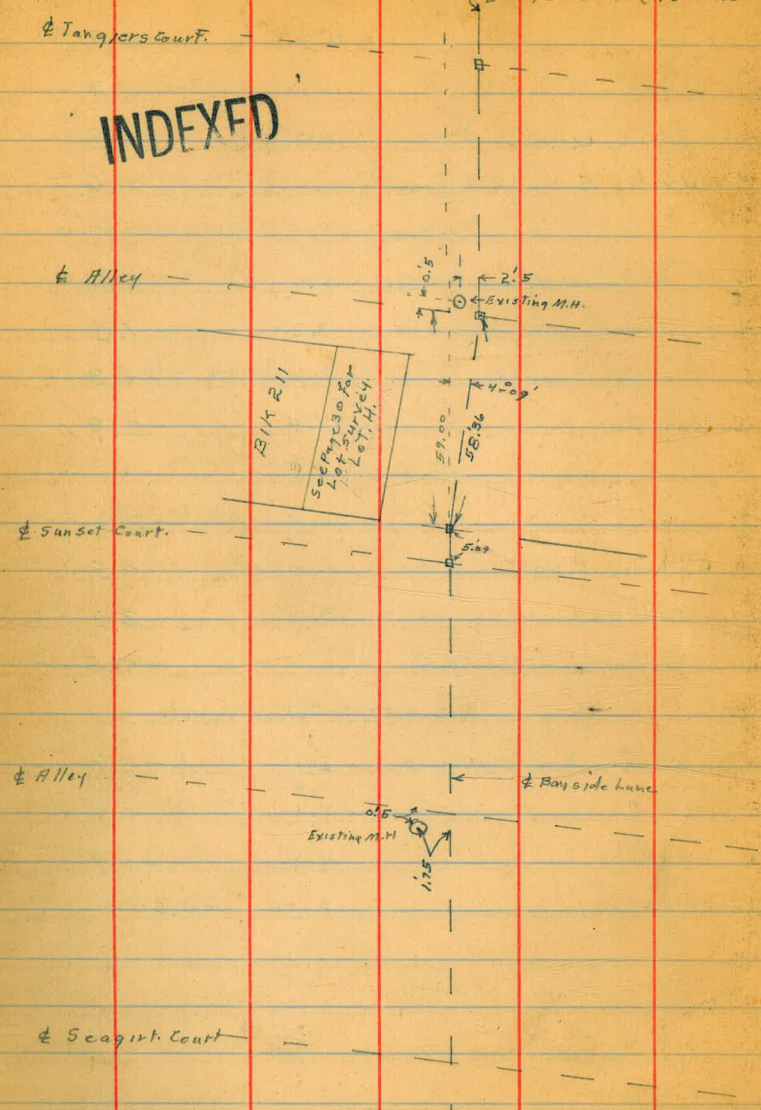 ℄ Tangiers Court.
INDEXED
℄ Alley
0.'5
2.'5
Existing M.H.
Blk 211
See Page 30 For
Lot Survey.
Lot. H.
4°09'
59.00
58.'36
℄ Sunset Court.
5.'09
℄ Alley
℄ Bayside Lane
0.'5
Existing M.H
1.'75
℄ Seagirt. Court